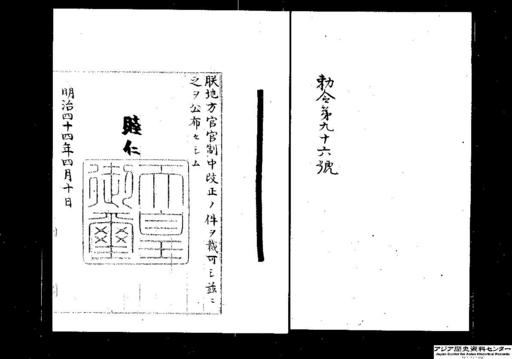 勅令第九十六號
朕地方官官制中改正ノ件ヲ裁可シ茲ニ
之ヲ公布セシム
睦仁
天皇御璽
明治四十四年四月十日
アジア歴史資料センター
Japan Center for Asian Historical Records